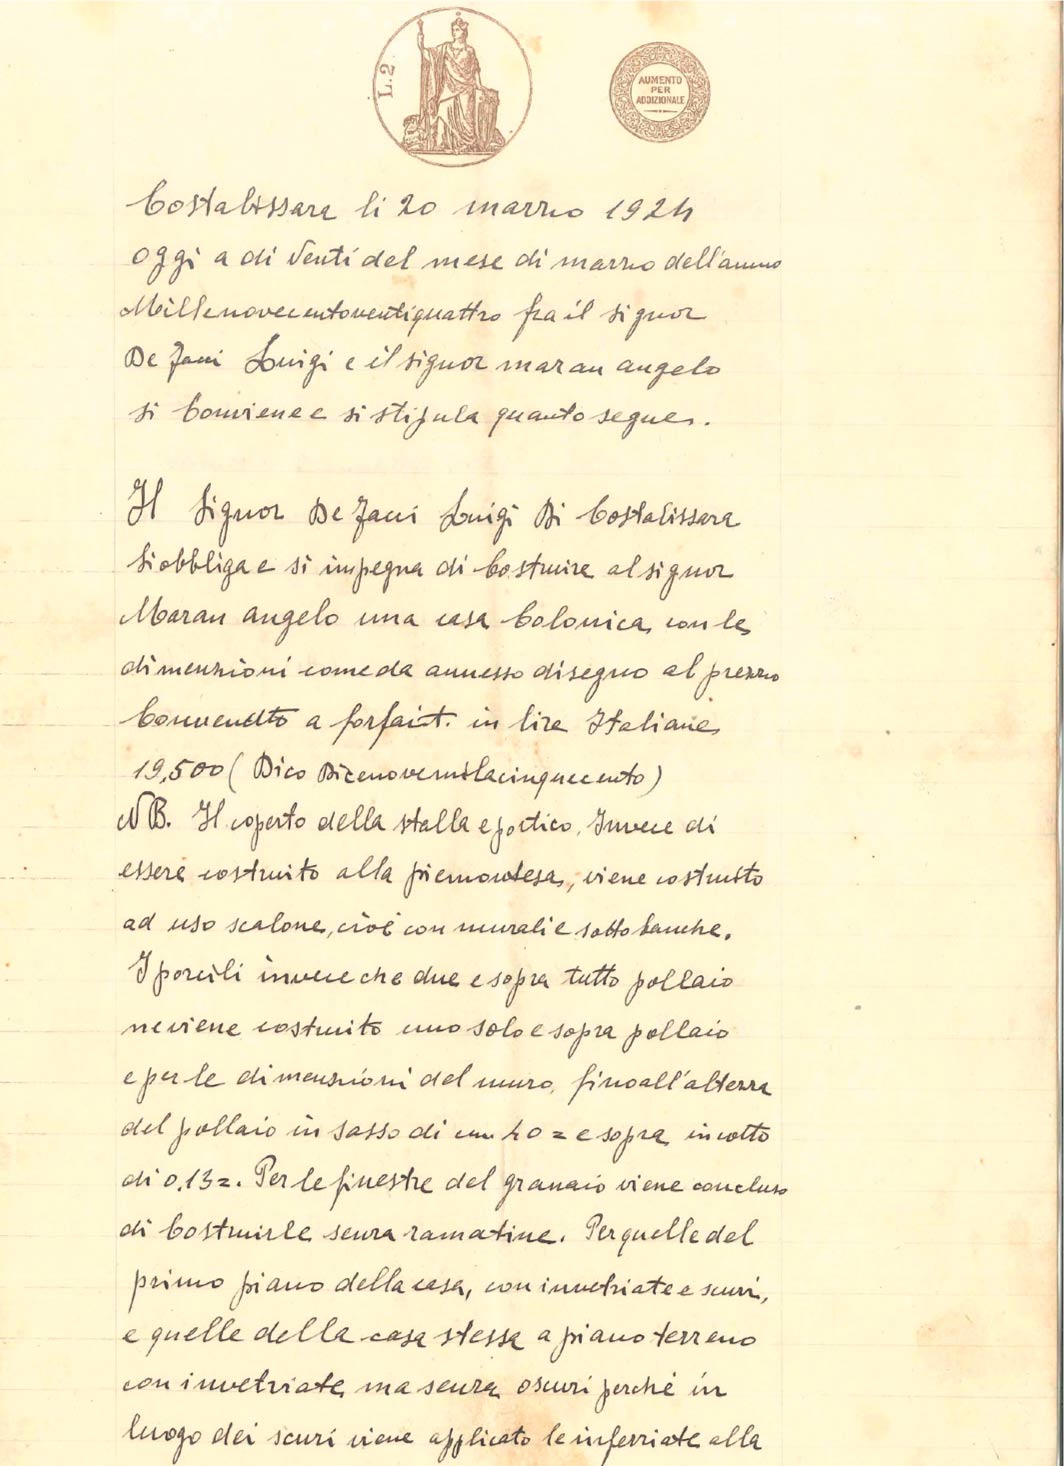 L.2
AUMENTO
PER
ADDIZIONALE
Costabissara li 20 marzo 1924
oggi a di Venti del mese di marzo dell'anno
Millenovecentoventiquattro fra il signor
De Zani Luigi e il signor maran angelo
si Conviene e si stipula quanto segue.
Il Signor De Zani Luigi Di Costabissara
Si obbliga e si impegna di Costruire al signor
Maran angelo una casa Colonica, con le
dimenzioni come da annesso disegno al prezzo
Convenuto a forfait. in lire Italiane
19,500 (Dico Dicenovemilacinquecento)
NB. Il coperto della stalla e portico, Invece di
essere costruito alla piemontesa, viene costruito
ad uso scalone, cioè con murali e sottobanche.
I porcili invece che due e sopra tutto pollaio
ne viene costruito uno solo e sopra pollaio
e per le dimenzioni del muro, fino all'altezza
del pollaio in sasso di cm 40 = e sopra in cotto
di 0.13=. Per le finestre del granaio viene concluso
di Costruirle senza ramatine. Per quelle del
primo piano della casa, con invetriate e scuri,
e quelle della casa stessa a piano terreno
con invetriate ma senza oscuri perchè in
luogo dei scuri viene applicato le inferriate alla